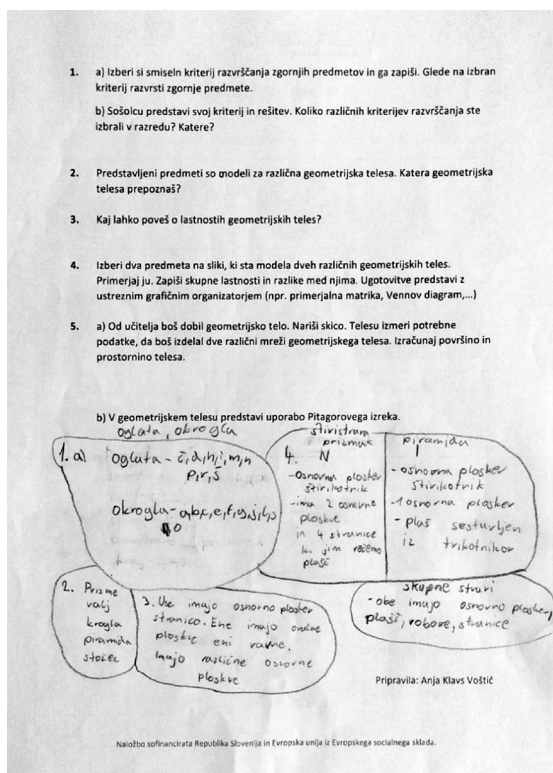 1. a) Izberi si smiseln kriterij razvrščanja zgornjih predmetov in ga zapiši. Glede na izbran
kriterij razvrsti zgornje predmete.
b) Sošolcu predstavi svoj kriterij in rešitev. Koliko različnih kriterijev razvrščanja ste
izbrali v razredu? Katere?
2. Predstavljeni predmeti so modeli za različna geometrijska telesa. Katera geometrijska
telesa prepoznaš?
3. Kaj lahko poveš o lastnostih geometrijskih teles?
4. Izberi dva predmeta na sliki, ki sta modela dveh različnih geometrijskih teles.
Primerjaj ju. Zapiši skupne lastnosti in razlike med njima. Ugotovitve predstavi z
ustreznim grafičnim organizatorjem (npr. primerjalna matrika, Vennov diagram,...)
5. a) Od učitelja boš dobil geometrijsko telo. Nariši skico. Telesu izmeri potrebne
podatke, da boš izdelal dve različni mreži geometrijskega telesa. Izračunaj površino in
prostornino telesa.
b) V geometrijskem telesu predstavi uporabo Pitagorovega izreka.
oglata, okrogla
1. a) oglata - č, d, h, i, m, n
p, r, š
okrogla -
2. Prizme
valj
krogla
piramida
stožec
3. Vse imajo osnovno ploskev
stranico. Ene imajo
ploskve eni ravne,
Imajo različne osnovne
ploskve
4.
prizma
N
- osnovna ploskev
štirikotnik
- ima 2 osnovno
ploskve
in 4 stranice
ki jim rečemo
plašč
piramida
- osnovna ploskev
štirikotnik
- 1 osnovna ploskev
- plašč sestavljen
iz trikotnikov
skupne stvari
- obe imajo osnovno ploskev,
plašč, robove, stranice
Pripravila: Anja Klavs Voštić
Naložbo sofinancirata Republika Slovenija in Evropska unija iz Evropskega socialnega sklada.